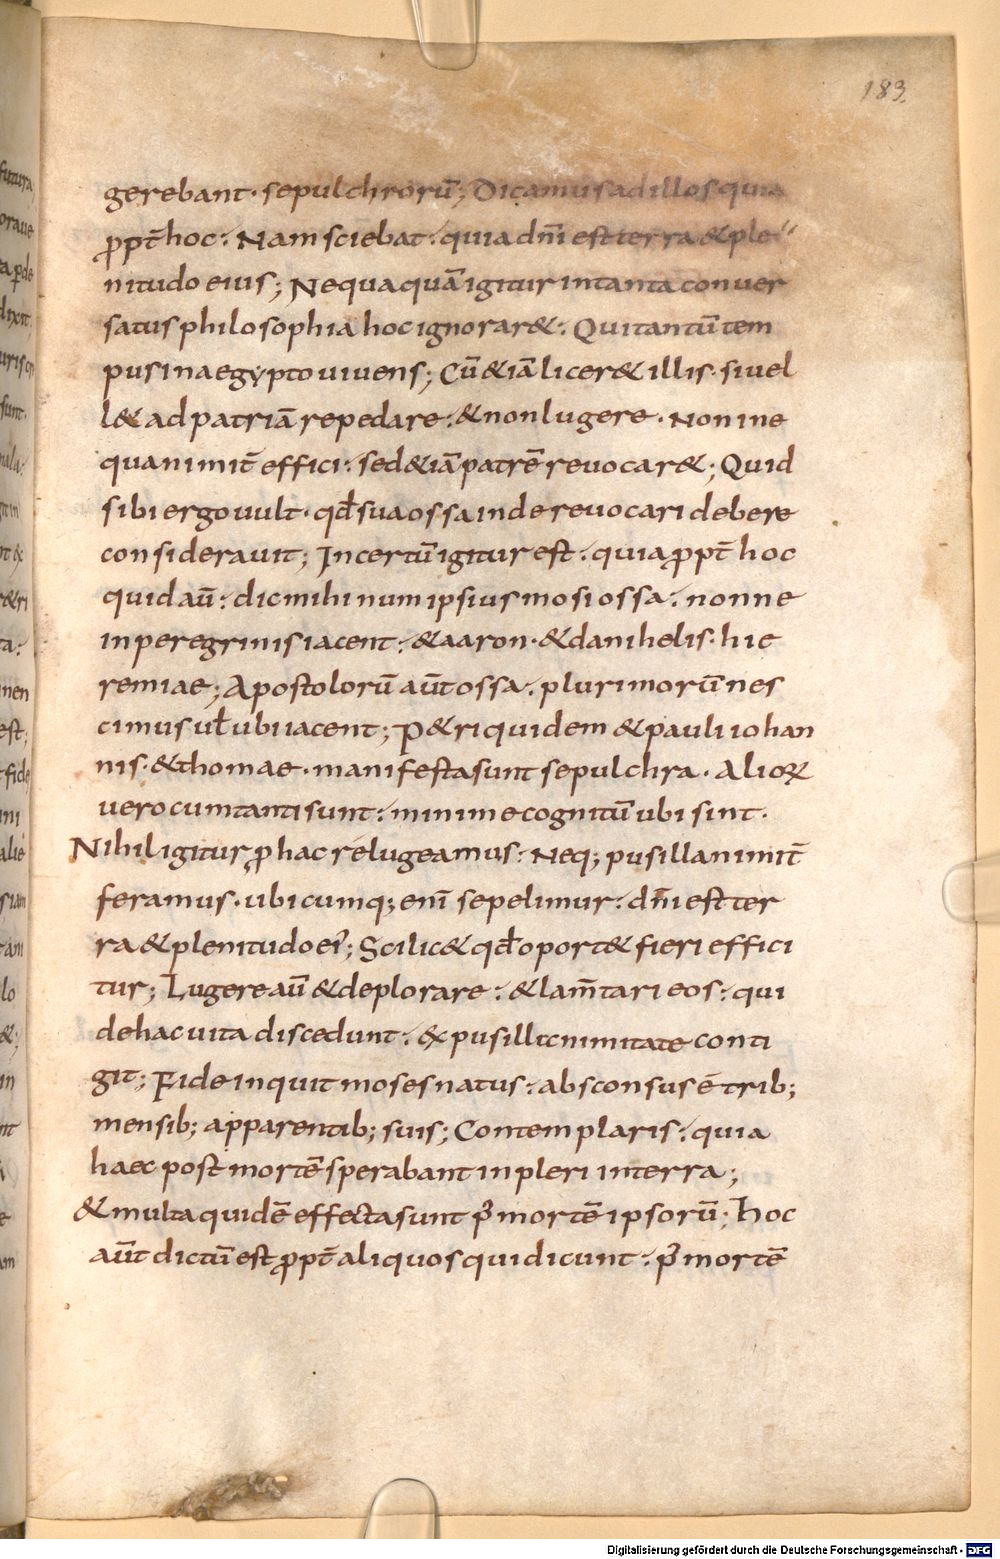 183.
gerebant· sepulchrorū; Dicamus ad illos quia
ꝓpt̄ hoc·: Nam sciebat·: quia dn̄i est terra & ple-
nitudo eius; Nequaquā igitur in tanta conuer
satus philosophia hoc ignorar&·: Qui tantū tem
pus in aegypto uiuens; Cū &iā licer& illis· siuel
l& ad patriā repedare·: & non lugere· Non ine
quanimit̄ effici·: sed &iā patrē reuocar&; Quid
sibi ergo uult· qd̄ sua ossa inde reuocari debere
considerauit; Incertū igitur est·: quia ꝓpt̄ hoc
quid aū·: dic mihi num ipsius mosi ossa·: nonne
in peregrinis iacent·: & aaron· & danihelis· hie
remiae; Apostolorū aūt ossa·: plurimorū nes
cimus ul̄ ubi iacent; P&ri quidem & pauli iohan
nis· & thomae· manifesta sunt sepulchra· Alioꝝ
uero cum tanti sunt·: minime cognitū ubi sint·
Nihil igitur ꝓ hac re lugeamus·: Neq; pusillanimit̄
feramus· ubicumq; enī sepelimur·: dn̄i est ter
ra & plenitudo ei'; Scilic& qd̄ oport& fieri effici
tur; Lugere aū & deplorare·: & lam̄tari eos·: qui
de hac uita discedunt·: ex pusillicnimitate conti
git; Fide inquit moses natus·: absconsus ē trib;
mensib; apparentib; suis; Contemplaris·: quia
haec post mortē sperabant inpleri in terra;
& multa quidē effecta sunt p' mortē ipsorū; Hoc
aūt dictū est ꝓpt̄ aliquos qui dicunt·: p' mortē
Digitalisierung gefördert durch die Deutsche Forschungsgemeinschaft - DFG